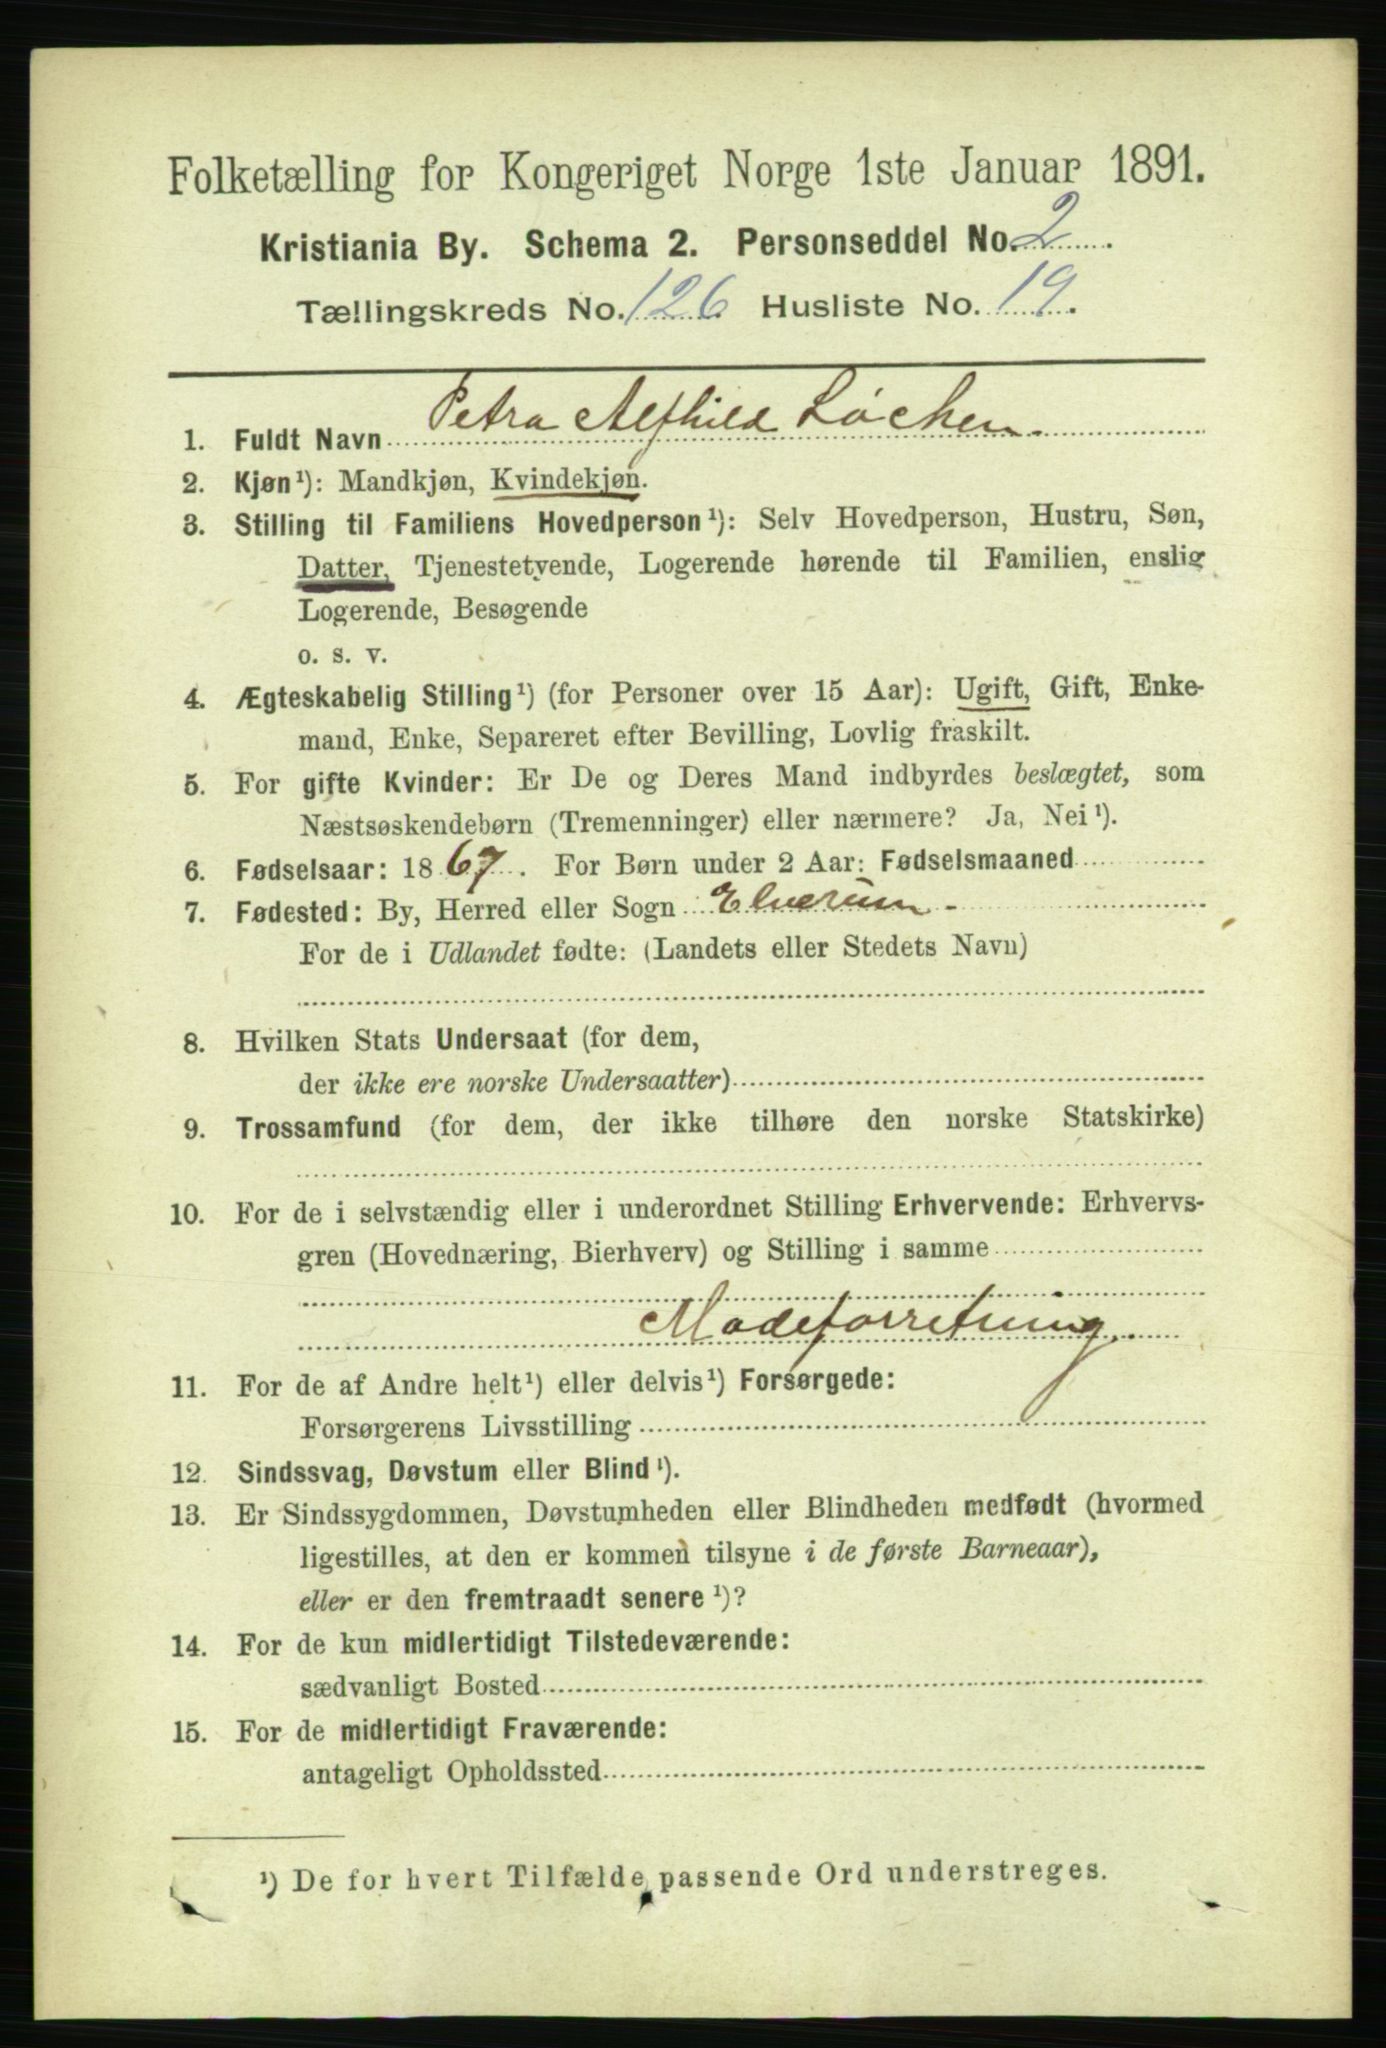 Folketælling for Kongeriget Norge 1ste Januar 1891.
Kristiania By. Schema 2. Personseddel No. 2.
Tællingskreds No. 126. Husliste No. 19.
1. Fuldt Navn Petra Alfhild Løchen.
2. Kjøn¹): Mandkjøn, Kvindekjøn.
3. Stilling til Familiens Hovedperson¹): Selv Hovedperson, Hustru, Søn,
Datter, Tjenestetyende, Logerende hørende til Familien, enslig
Logerende, Besøgende
o. s. v.
4. Ægteskabelig Stilling¹) (for Personer over 15 Aar): Ugift, Gift, Enke-
mand, Enke, Separeret efter Bevilling, Lovlig fraskilt.
5. For gifte Kvinder: Er De og Deres Mand indbyrdes beslægtet, som
Næstsøskendebørn (Tremenninger) eller nærmere? Ja, Nei¹).
6. Fødselsaar: 1867. For Børn under 2 Aar: Fødselsmaaned
7. Fødested: By, Herred eller Sogn Elverum.
For de i Udlandet fødte: (Landets eller Stedets Navn)
8. Hvilken Stats Undersaat (for dem,
der ikke ere norske Undersaatter)
9. Trossamfund (for dem, der ikke tilhøre den norske Statskirke)
10. For de i selvstændig eller i underordnet Stilling Erhvervende: Erhvervs-
gren (Hovednæring, Bierhverv) og Stilling i samme
Modeforretning.
11. For de af Andre helt¹) eller delvis¹) Forsørgede:
Forsørgerens Livsstilling
12. Sindssvag, Døvstum eller Blind¹).
13. Er Sindssygdommen, Døvstumheden eller Blindheden medfødt (hvormed
ligestilles, at den er kommen tilsyne i de første Barneaar),
eller er den fremtraadt senere¹)?
14. For de kun midlertidigt Tilstedeværende:
sædvanligt Bosted
15. For de midlertidigt Fraværende:
antageligt Opholdssted
¹) De for hvert Tilfælde passende Ord understreges.